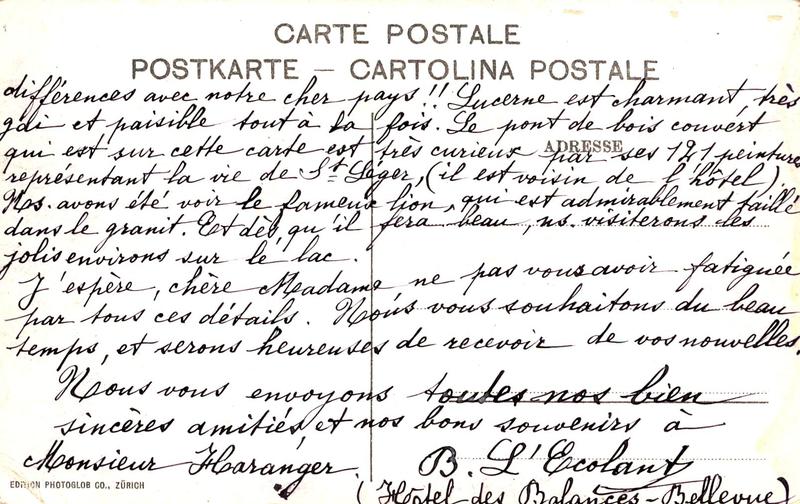 CARTE POSTALE
POSTKARTE – CARTOLINA POSTALE
différences avec notre cher pays!! Lucerne est charmant, très
gai et paisible tout à la fois. Le pont de bois couvert
ADRESSE
qui est sur cette carte est très curieux par ses 121 peintures
représentant la vie de St Léger, (il est voisin de l'hôtel)
Ns. avons été voir le fameux lion, qui est admirablement taillé
dans le granit. Et dès qu'il fera beau, ns. visiterons les
jolis environs sur le lac.
J'espère, chère Madame ne pas vous avoir fatiguée
par tous ces détails. Nous vous souhaitons du beau
temps, et serons heureuses de recevoir de vos nouvelles.
Nous vous envoyons toutes nos bien
sincères amitiés, et nos bons souvenirs à
Monsieur Haranger. B. L'Ecolant
EDITION PHOTOGLOB CO., ZÜRICH
(Hôtel des Balances-Bellevue)